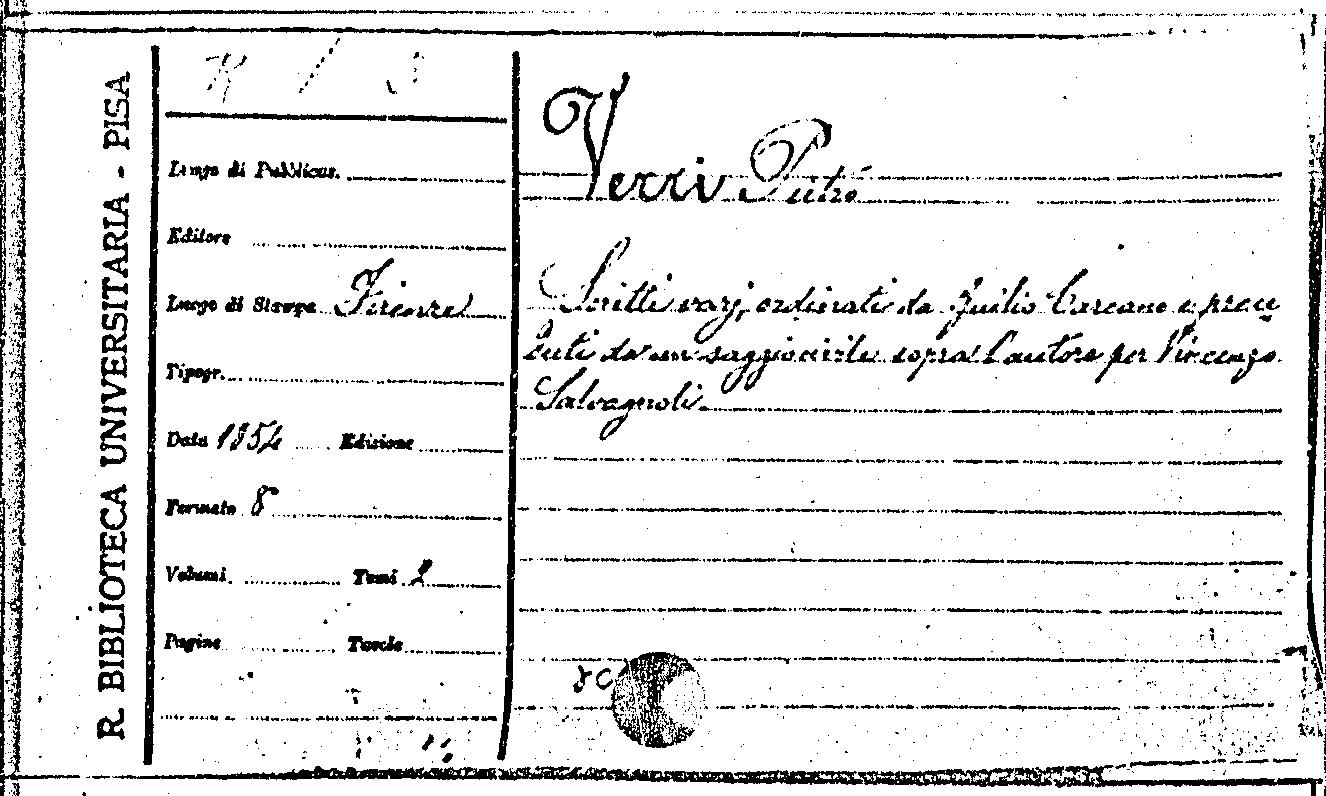 R. BIBLIOTECA UNIVERSITARIA - PISA
Luogo di Pubblicaz.
Editore
Luogo di Stampa Firenze
Tipogr.
Data 1854 Edizione
Formato 8
Volumi Tomi 2
Pagine Tavole
Verri Pietro
Scritti varj, ordinati da Giulio Carcano e prece
duti da un saggio civile sopra l'autore per Vincenzo
Salvagnoli.